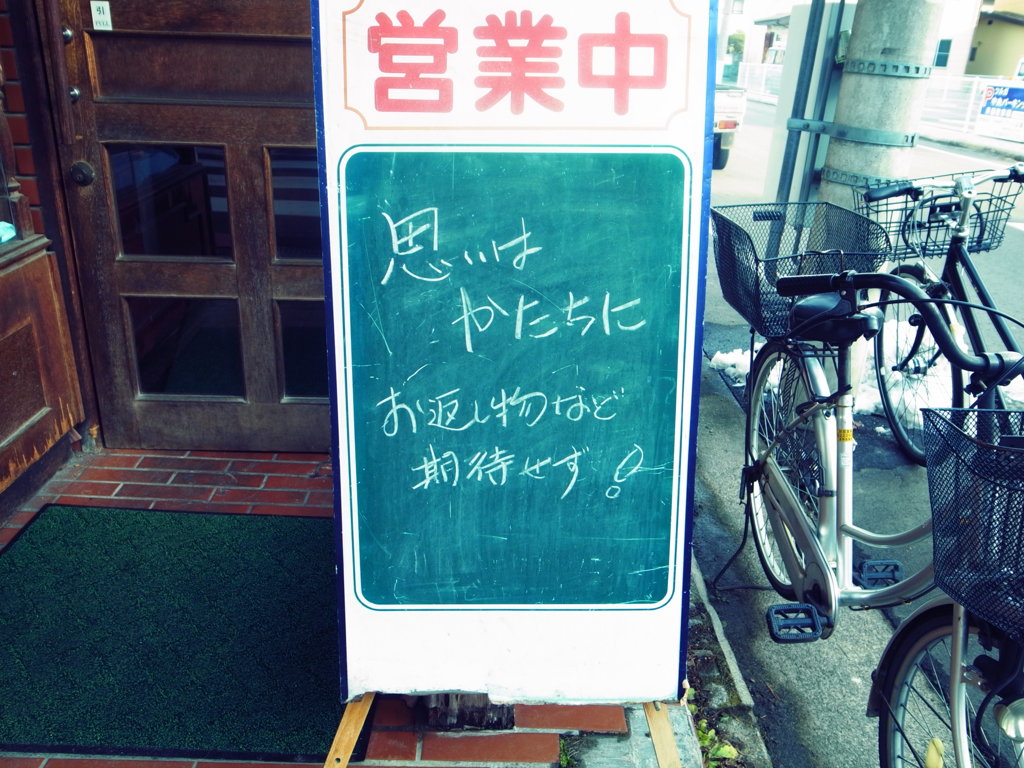 営業中
思いは
かたちに
お返し物など
期待せず!
引